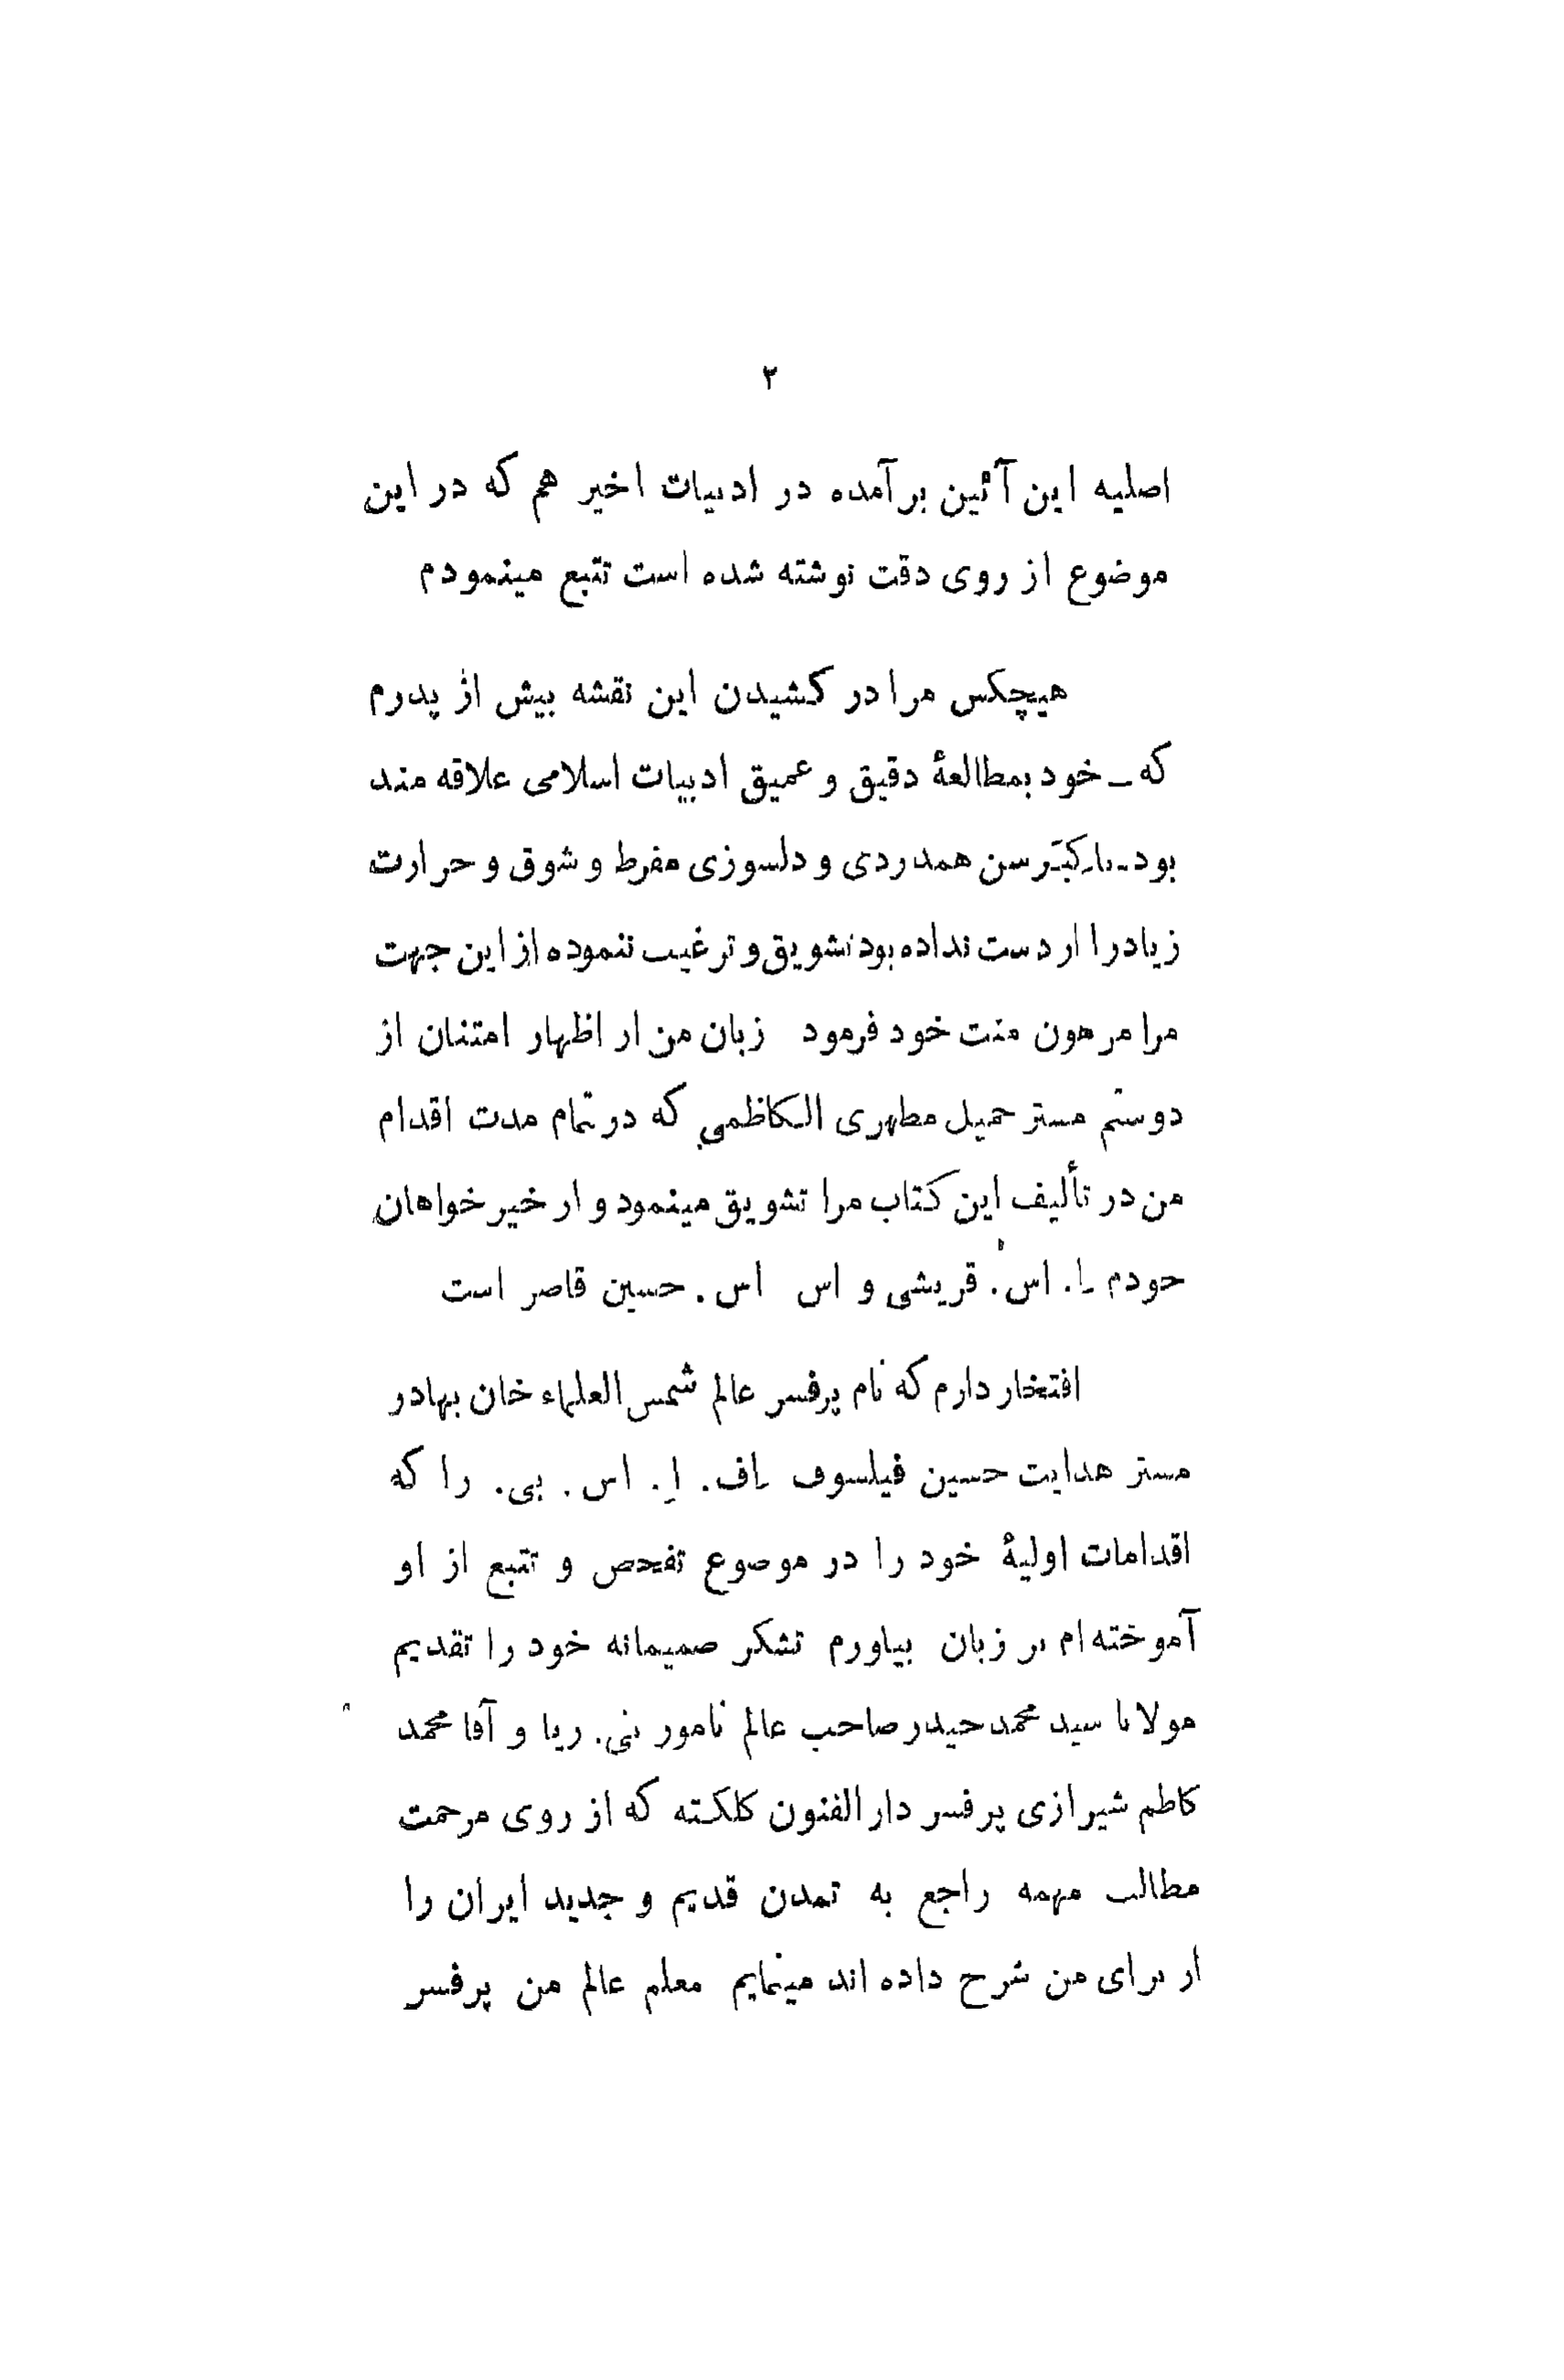 ۲
اصلیه این آئین برآمده در ادبیات اخیر هم که در این
موضوع از روی دقت نوشته شده است تتبع مینمودم
هیچکس مرا در کشیدن این نقشه بیش از پدرم
که ـ خود بمطالعهٔ دقیق و عمیق ادبیات اسلامی علاقه مند
بود ـ با کبر سن همدردی و دلسوزی مفرط و شوق و حرارت
زیاد را از دست نداده بود تشویق و ترغیب ننموده از این جهت
مرا مرهون منت خود فرمود زبان من از اظهار امتنان از
دوستم مستر جمیل مطهری الکاظمی که در تمام مدت اقدام
من در تألیف این کتاب مرا تشویق مینمود و از خیر خواهان
خودم . اس . قریشی و اس اس . حسین قاصر است
افتخار دارم که نام پرفسر عالم شمس العلماء خان بهادر
مستر هدایت حسین فیلسوف اف . اِ . اس . بی . را که
اقدامات اولیهٔ خود را در موضوع تفحص و تتبع از او
آموخته‌ام بر زبان بیاورم تشکر صمیمانه خود را تقدیم
مولانا سید محمد حیدر صاحب عالم نامور و آقا محمد
کاظم شیرازی پرفسر دار الفنون کلکته که از روی مرحمت
مطالب مهمه راجع به تمدن قدیم و جدید ایران را
از برای من شرح داده اند مینمایم معلم عالم من پرفسر